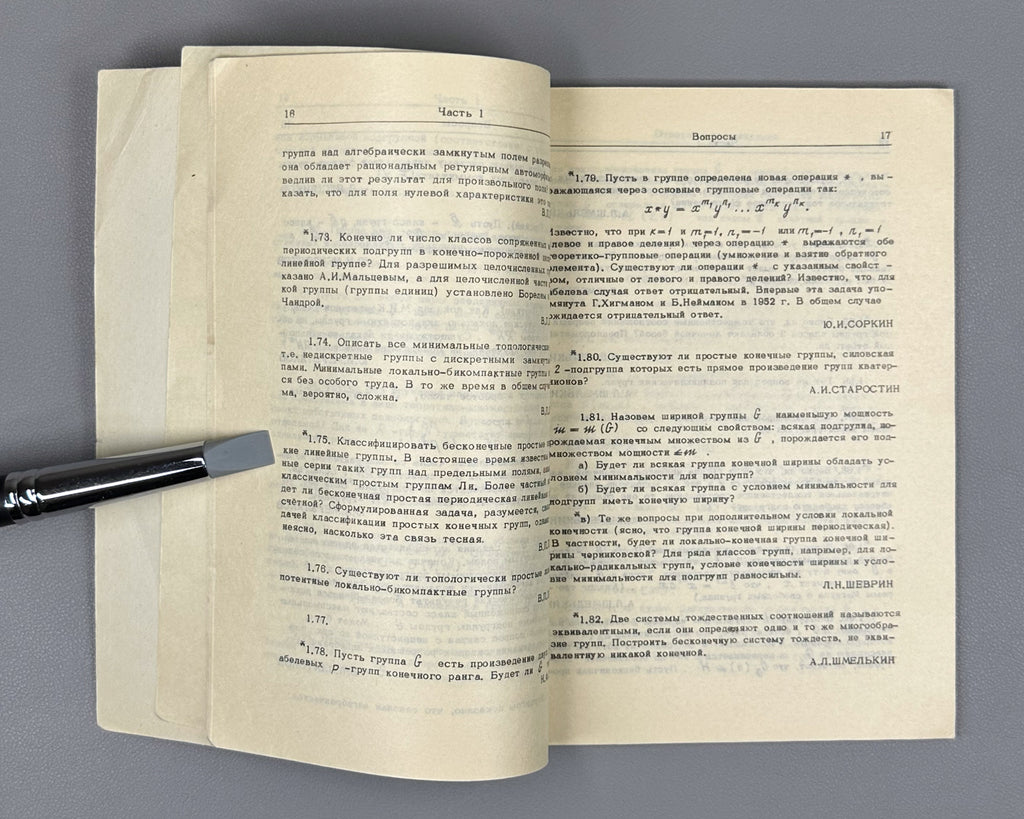 16
Часть 1
группа над алгебраически замкнутым полем
она обладает рациональным регулярным
ведлив ли этот результат для произвольного
казать, что для поля нулевой характеристики это
*1.73. Конечно ли число классов сопряженных
периодических подгрупп в конечно-порожденной
линейной группе? Для разрешимых целочисленных
казано А.И.Мальцевым, а для целочисленной
кой группы (группы единиц) установлено Борелем
Чандрой.
1.74. Описать все минимальные
т.е. недискретные группы с дискретными
пами. Минимальные локально-бикомпактные группы
ся без особого труда. В то же время в общем
ма, вероятно, сложна.
*1.75. Классифицировать бесконечные простые
кие линейные группы. В настоящее время
ные серии таких групп над предельными полями,
классическим простым группам Ли. Более
дет ли бесконечная простая периодическая
счётной? Сформулированная задача, разумеется,
дачей классификации простых конечных групп,
неясно, насколько эта связь тесная.
1.76. Существуют ли топологически простые
потентные локально-бикомпактные группы?
1.77.
*1.78. Пусть группа G есть произведение
абелевых p -групп конечного ранга. Будет ли G
Вопросы
17
*1.79. Пусть в группе определена новая операция * , вы-
ажающаяся через основные групповые операции так:
x*y = x^{m_1} y^{n_1} ... x^{m_k} y^{n_k}.
Известно, что при k=1 и m_1=1, n_1=-1 или m_1=-1 , n_1=1
левое и правое деления) через операцию * выражаются обе
еоретико-групповые операции (умножение и взятие обратного
лемента). Существуют ли операции * с указанным свойст -
вом, отличные от левого и правого делений? Известно, что для
абелева случая ответ отрицательный. Впервые эта задача упо-
мянута Г.Хигманом и Б.Нейманом в 1952 г. В общем случае
ожидается отрицательный ответ.
Ю.И.СОРКИН
*1.80. Существуют ли простые конечные группы, силовская
2 -подгруппа которых есть прямое произведение групп кватер-
ионов?
А.И.СТАРОСТИН
1.81. Назовем шириной группы G наименьшую мощность
m = m(G) со следующим свойством: всякая подгруппа, по-
рождаемая конечным множеством из G , порождается его под-
множеством мощности ≤m .
а) Будет ли всякая группа конечной ширины обладать ус-
ловием минимальности для подгрупп?
б) Будет ли всякая группа с условием минимальности для
подгрупп иметь конечную ширину?
*в) Те же вопросы при дополнительном условии локальной
конечности (ясно, что группа конечной ширины периодическая).
В частности, будет ли локально-конечная группа конечной ши-
рины черниковской? Для ряда классов групп, например, для ло-
кально-радикальных групп, условие конечности ширины и усло-
вие минимальности для подгрупп равносильны.
Л.Н.ШЕВРИН
*1.82. Две системы тождественных соотношений называются
эквивалентными, если они определяют одно и то же многообра-
зие групп. Построить бесконечную систему тождеств, не экви-
валентную никакой конечной.
А.Л.ШМЕЛЬКИН